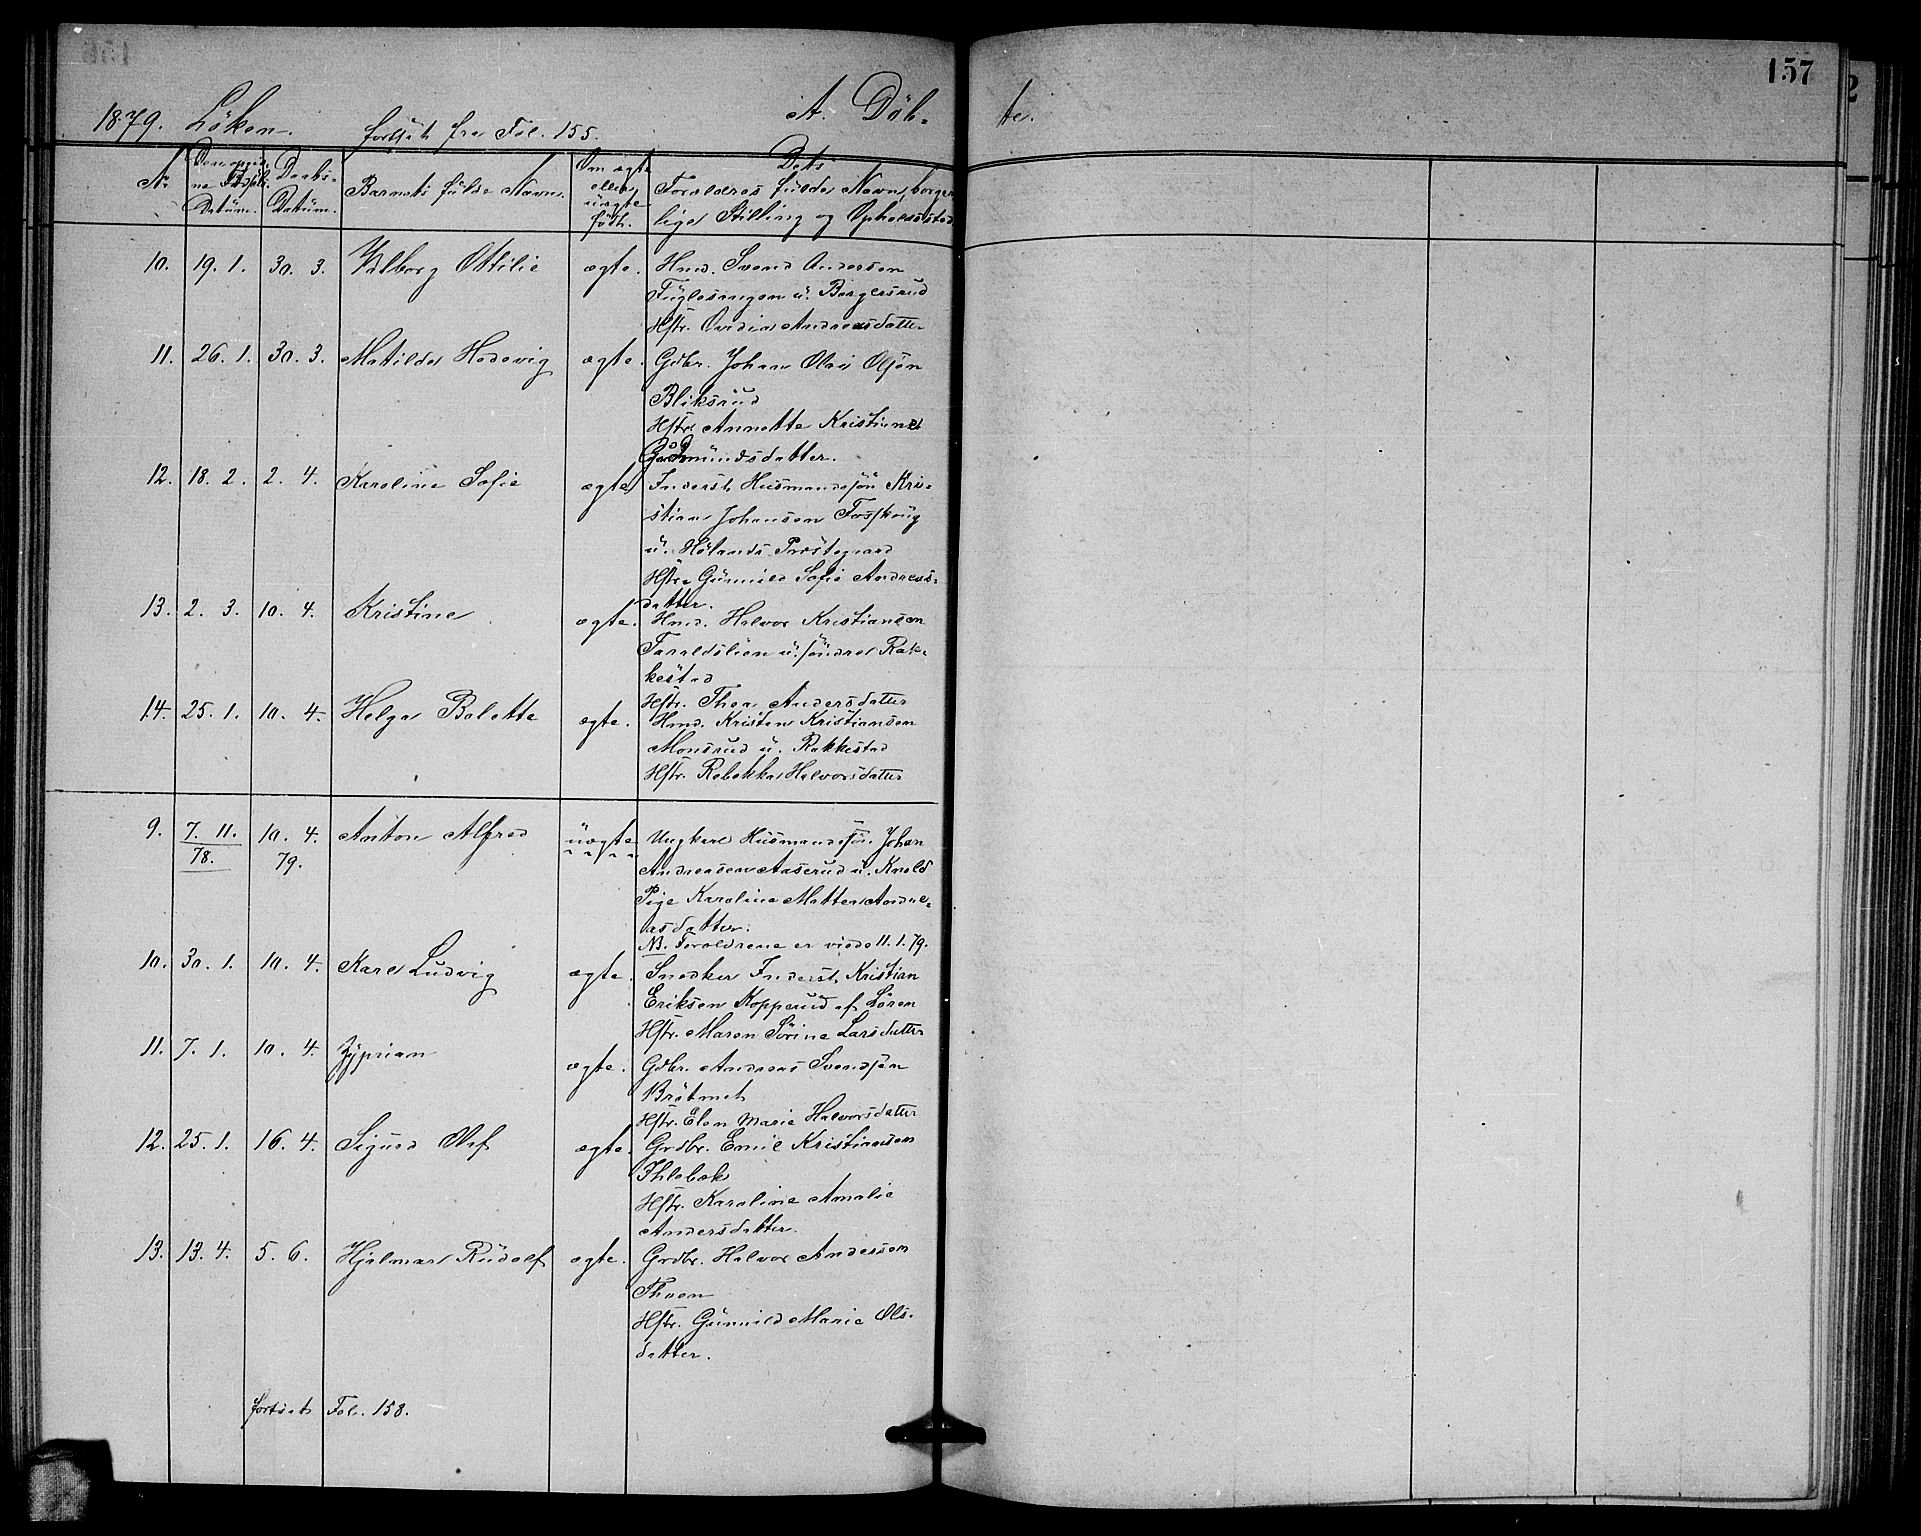 157
1879. Löken. fortsat fra Fol. 155. A. Döb- te.
No Datum. Daabs-Datum. Barnets fulde Navn. Om ægte eller uægte født. Dets Forældres fulde Navn, borgerlige Stilling og Opholdssted
10. 19. 1. 30. 3. Valborg Ottilie ægte. Hmd. Svend Andersen
Fuglesangen u. Borgersrud
Hstr. Ovidia Andreasdatter
11. 26. 1. 30. 3. Matilde Hedevig ægte. Gdbr. Johan Olai Olsön
Bliksrud
Hstr. Annette Kristine
Gudmundsdatter.
12. 18. 2. 2. 4. Karoline Sofie ægte Inderst, Husmandssön Kri-
stian Johansen Fosskoug
u. Hölands Præstegaard
Hstr. Gunnild Sofie Andreas-
datter.
13. 2. 3. 10. 4. Kristine ægte. Hmd. Halvor Kristiansen
Taraldslien u. söndre Rak-
kestad
Hstr. Thea Andersdatter
14. 25. 1. 10. 4. Helga Belette ægte. Hmd. Kristen Kristiansen
Monsrud u. Rakkestad
Hstr. Rebekka Halvorsdatter
9. 7. 11. 78. 10. 4. 79. Anton Alfred uægte Ungkarl Husmandssön Johan
Andreasen Aaserud u. Knold
Pige Karoline Mattea Andre-
asdatter.
NB. Forældrene er viede 11. 1. 79.
10. 30. 1. 10. 4. Karl Ludvig ægte. Snedker Inderst, Kristian
Eriksen Kopperud af Lören
Hstr. Maren Sörine Larsdatter
11. 7. 1. 10. 4. Zyprian ægte. Gdbr. Andreas Svendsen
Bråtmet
Hstr. Elen Marie Halvorsdatter
12. 25. 1. 16. 4. Sigurd Olaf ægte. Grdbr. Emil Kristiansen
Ihlebæk
Hstr. Karoline Amalie
Andersdatter.
13. 13. 4. 5. 6. Hjalmar Rudolf ægte. Grdbr. Halvor Andersen
Thuen
Hstr. Gunnild Marie Ols-
datter.
fortsat Fol. 158.